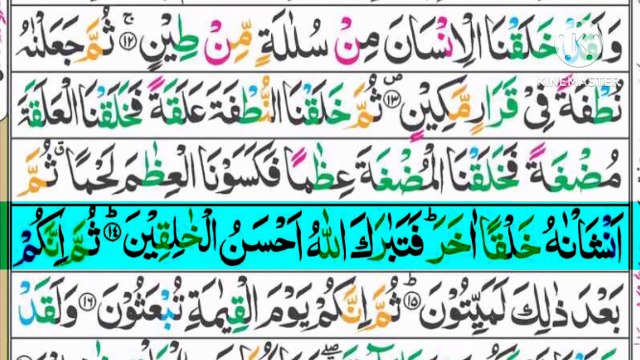 وَلَقَدْ خَلَقْنَا الْاِنْسَانَ مِنْ سُلٰلَةٍ مِّنْ طِيْنٍ ۚ۝۱۲ ثُمَّ جَعَلْنٰهُ
نُطْفَةً فِیْ قَرَارٍ مَّكِيْنٍ ۪۝۱۳ ثُمَّ خَلَقْنَا النُّطْفَةَ عَلَقَةً فَخَلَقْنَا الْعَلَقَةَ
مُضْغَةً فَخَلَقْنَا الْمُضْغَةَ عِظٰمًا فَكَسَوْنَا الْعِظٰمَ لَحْمًا ۗ ثُمَّ
اَنْشَاْنٰهُ خَلْقًا اٰخَرَ ؕ فَتَبٰرَكَ اللّٰهُ اَحْسَنُ الْخٰلِقِيْنَ ؕ۝۱۴ ثُمَّ اِنَّكُمْ
بَعْدَ ذٰلِكَ لَمَيِّتُوْنَ ؕ۝۱۵ ثُمَّ اِنَّكُمْ يَوْمَ الْقِيٰمَةِ تُبْعَثُوْنَ ۝۱۶ وَلَقَدْ
KINEMASTER